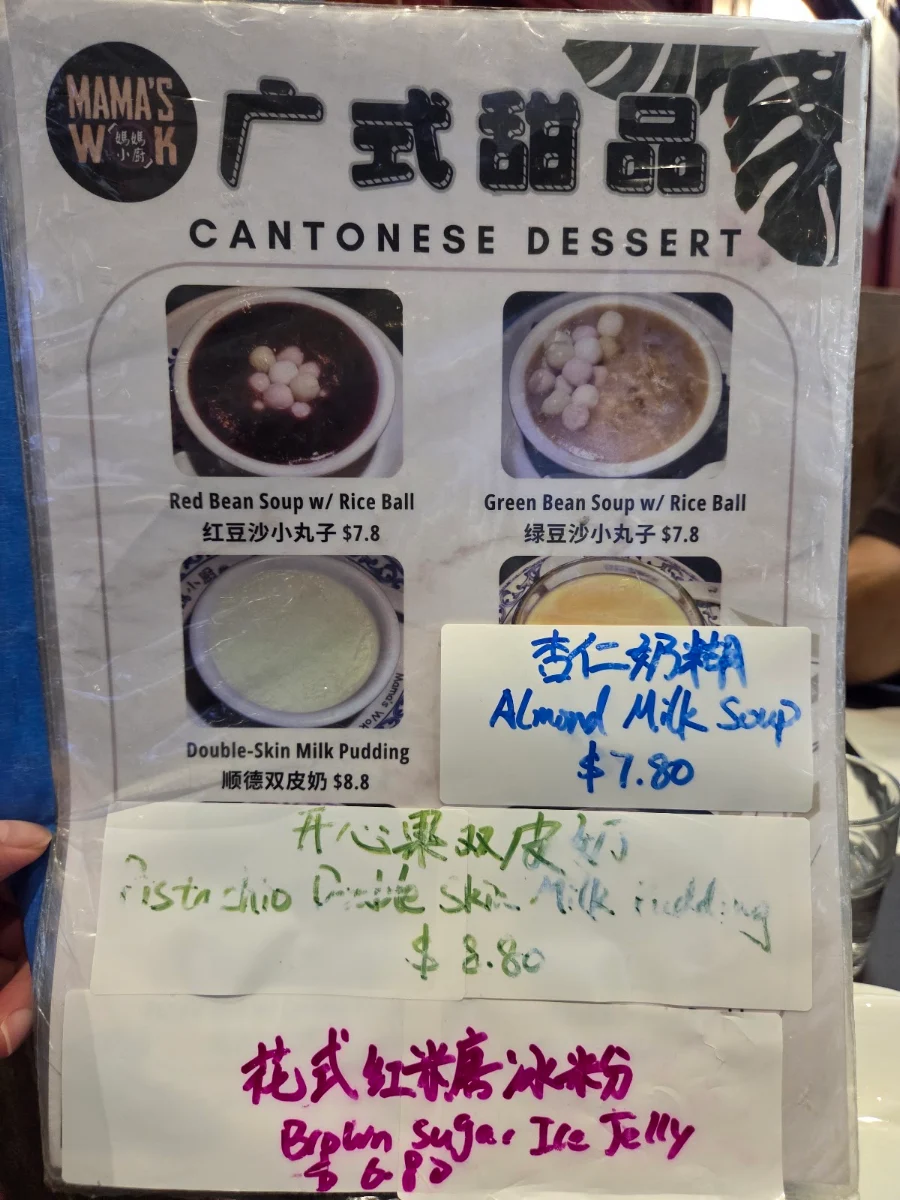 MAMA'S
WOK
媽媽
小廚
广式甜品
CANTONESE DESSERT
Red Bean Soup w/ Rice Ball
红豆沙小丸子 $7.8
Green Bean Soup w/ Rice Ball
绿豆沙小丸子 $7.8
小廚
Mama's Wok
Double-Skin Milk Pudding
顺德双皮奶 $8.8
杏仁奶糊
Almond Milk Soup
$7.80
开心果双皮奶
Pistachio Double Skin Milk Pudding
$ 8.80
花式红糖冰粉
Brown Sugar Ice Jelly
$ 6.80